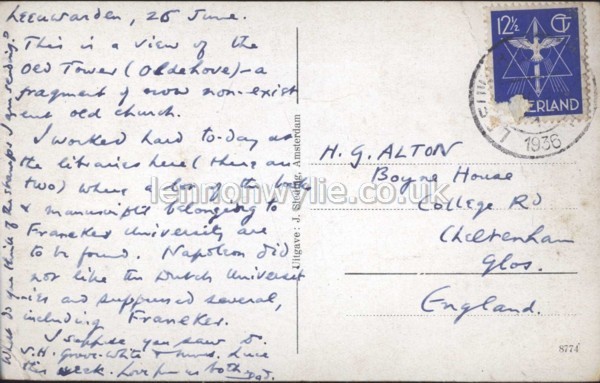 Leeuwarden, 26 June.
This is a view of the
Old Tower (Oldehove) – a
fragment of now non-exist
ent old church.
I worked hard to-day at
the libraries here (there are
two) where a lot of the books
& manuscripts belonging to
Franeker University are
to be found. Napoleon did
not like the Dutch Universit
ies and suppressed several,
including Franeker.
I suppose you saw to
S.H. Grove-White &
this week. Love from us both
What do you think of the stamps I am sending?
Uitgave: J. Sleding, Amsterdam
12½ ct
NEDERLAND
1936
H. G. ALTON
Boyne House
College Rd
Cheltenham
Glos.
England.
8774
lennonwylie.co.uk